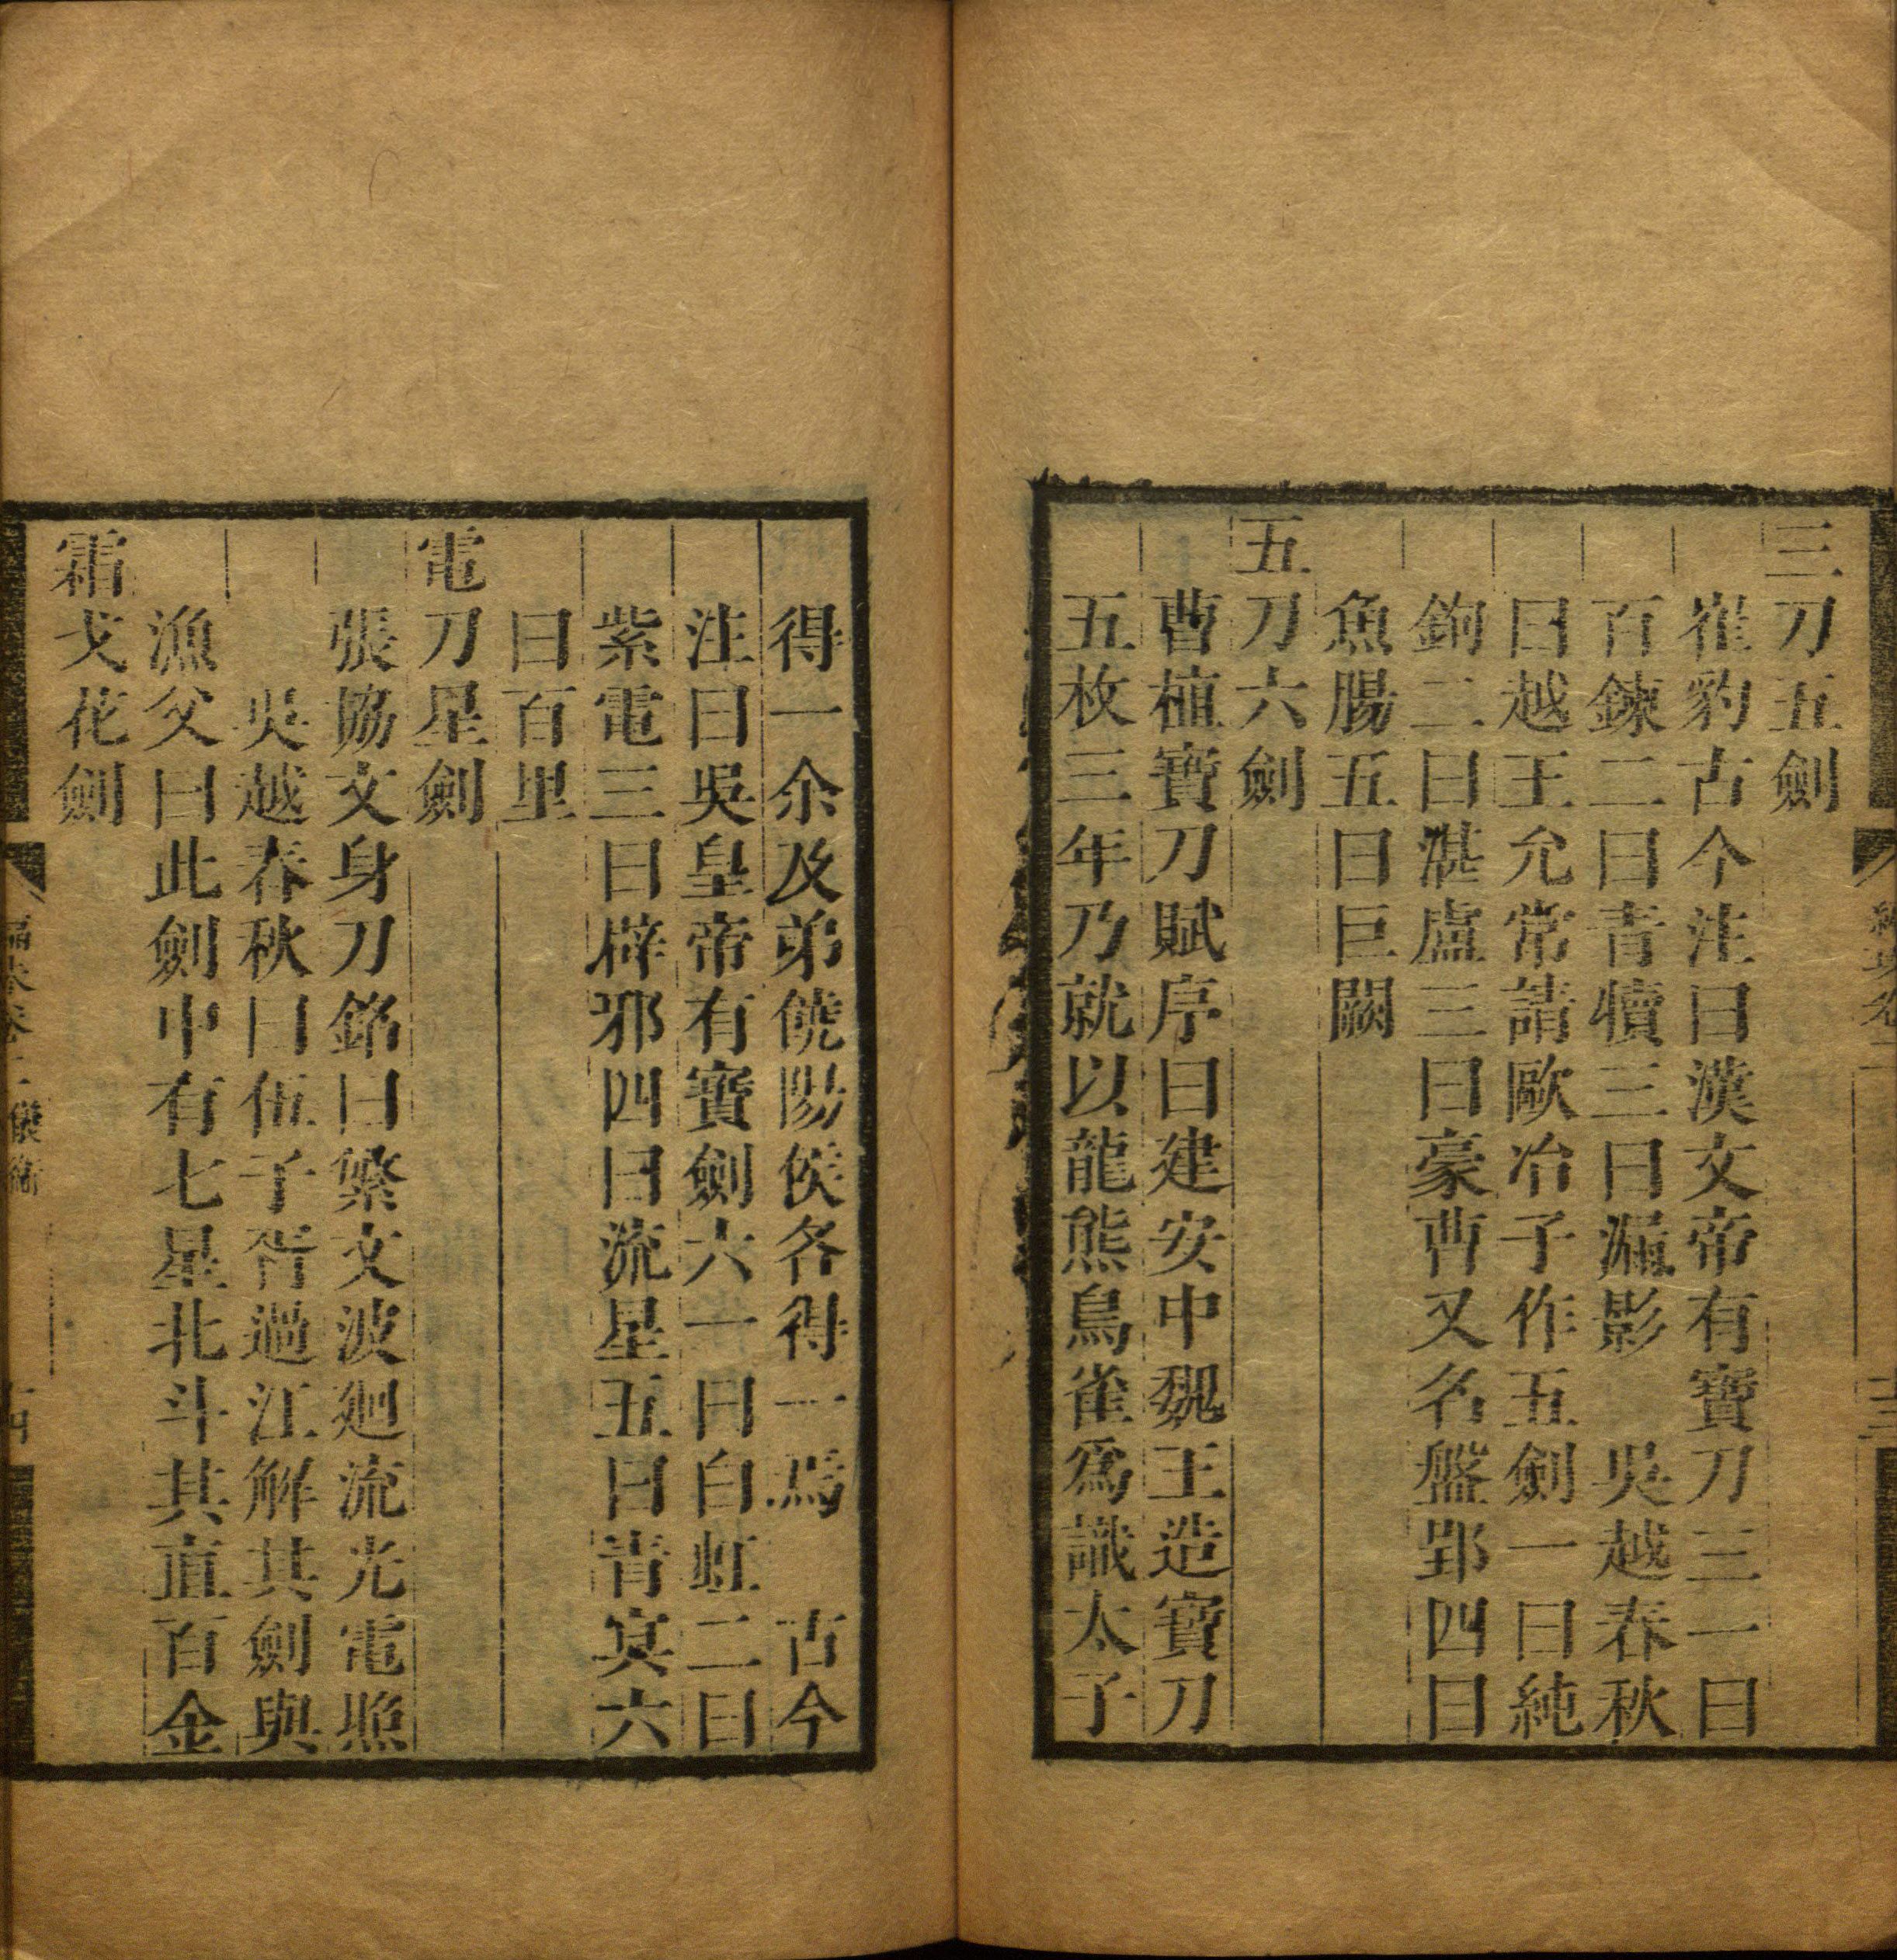 三刀五劍
崔豹古今注曰漢文帝有寶刀三一曰
百鍊二曰青犢三曰漏影　吳越春秋
曰越王允常請歐冶子作五劍一曰純
鉤二曰湛盧三曰豪曹又名盤郢四曰
魚腸五曰巨闕
五刀六劍
曹植寶刀賦序曰建安中魏王造寶刀
五枚三年乃就以龍熊鳥雀爲識太子
得一余及弟饒陽侯各得一焉　古今
注曰吳皇帝有寶劍六一曰白虹二曰
紫電三曰辟邪四曰流星五曰青冥六
曰百里
電刀星劍
張協文身刀銘曰繁文波迴流光電照
吳越春秋曰伍子胥過江解其劍與
漁父曰此劍中有七星北斗其直百金
霜戈花劍